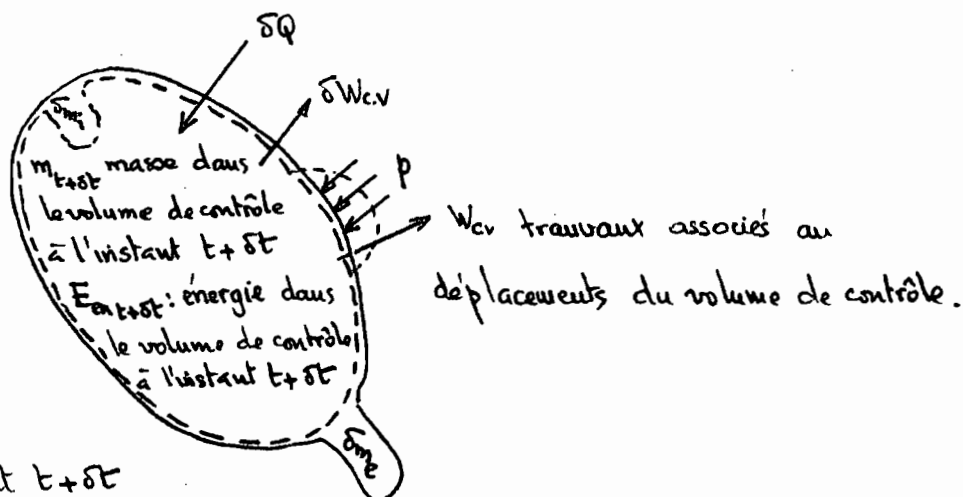 δQ
δWc.v
δmi
m t+δt masse dans
le volume de contrôle
à l'instant t + δt
E en t+δt : énergie dans
le volume de contrôle
à l'instant t + δt
p
Wcv travaux associés au
déplacements du volume de contrôle.
δme
t t + δt